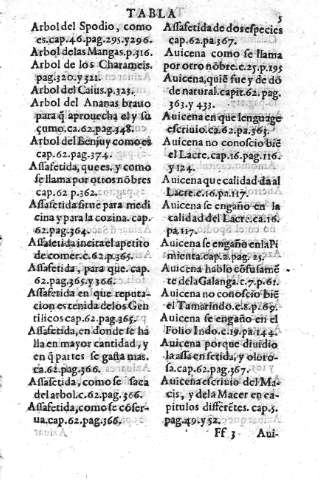 TABLA 5
Arbol del Spodio, como
es.cap.46.pag.295.y296.
Arbol delas Mangas.p.316.
Arbol de los Charameis.
pag.320.y 321.
Arbol del Caius.p.323.
Arbol del Ananas brauo
para q̃ aprouecha el y su
çumo.ca.62.pag.348.
Arbol del Benjuy como es
cap.62.pag.374.
Assafetida, que es. y como
se llama por otros nõbres
cap.62 p.362.
Assafetida sirue para medi
cina y para la cozina. cap.
62.pag.364.
Assafetida incita el apetito
de comer.c.62.p.365.
Assafetida, para que. cap.
62.pag.365.y 366.
Assafetida en que reputa-
cion es tenida de los Gen
tilicos cap.62.pag.365.
Assafetida, en donde se ha
lla en mayor cantidad, y
en q̃ partes se gasta mas.
ca.62.pag.366.
Assafetida, como se saca
del arbol.c.62.pag.366.
Assafetida, como se cõser-
ua.cap.62.pag.366.
Assafetida de dos especies
cap.62.pa.367.
Auicena como se llama
por otro nõbre.c.25.p.195
Auicena, quiẽ fue y de dõ
de natural.capit.62.pag.
363.y 433.
Auicena en que lenguage
escriuio.ca.62.pa.363.
Auicena no conoscio biẽ
el Lacre.cap.16.pag.116.
y 124.
Auicena que calidad da al
Lacre.c.16.pa.117.
Auicena se engaño en la
calidad del Lacre.ca.16.
pa.117.
Auicena se engaño en la Pi
mienta.cap.2.pag.25.
Auicena hablo cõfusamẽ
te dela Galanga.c.7.p.61.
Auicena no conoscio biẽ
el Tamarindo.c.8.p.67.
Auicena se engaño en el
Folio Indo.c.19.pa.144.
Auicena porque diuidio
la assa en fetida, y oloro-
sa.cap.62.pag.367.
Auicena escriuio del Ma-
cis, y dela Macer en ca-
pitulos differẽtes. cap.5.
pag.49.y 52.
Ff 3 Aui-